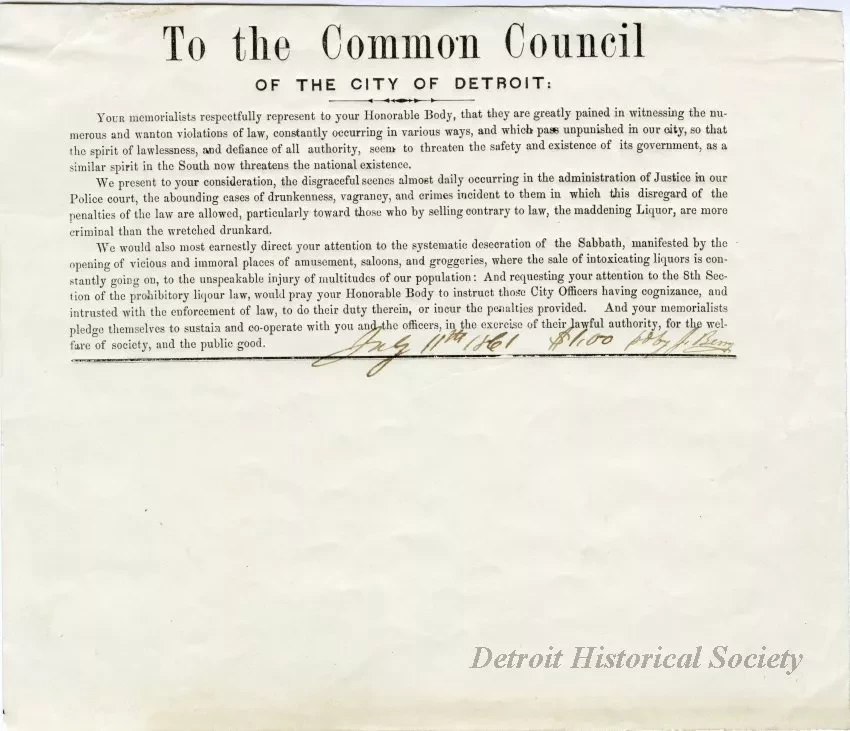 To the Common Council
OF THE CITY OF DETROIT:
YOUR memorialists respectfully represent to your Honorable Body, that they are greatly pained in witnessing the nu-
merous and wanton violations of law, constantly occurring in various ways, and which pass unpunished in our city, so that
the spirit of lawlessness, and defiance of all authority, seem to threaten the safety and existence of its government, as a
similar spirit in the South now threatens the national existence.
We present to your consideration, the disgraceful scenes almost daily occurring in the administration of Justice in our
Police court, the abounding cases of drunkenness, vagrancy, and crimes incident to them in which this disregard of the
penalties of the law are allowed, particularly toward those who by selling contrary to law, the maddening Liquor, are more
criminal than the wretched drunkard.
We would also most earnestly direct your attention to the systematic desecration of the Sabbath, manifested by the
opening of vicious and immoral places of amusement, saloons, and groggeries, where the sale of intoxicating liquors is con-
stantly going on, to the unspeakable injury of multitudes of our population: And requesting your attention to the 8th Sec-
tion of the prohibitory liqour law, would pray your Honorable Body to instruct those City Officers having cognizance, and
intrusted with the enforcement of law, to do their duty therein, or incur the penalties provided. And your memorialists
pledge themselves to sustain and co-operate with you and the officers, in the exercise of their lawful authority, for the wel-
fare of society, and the public good.
July 11th 1861 $1.00
Detroit Historical Society